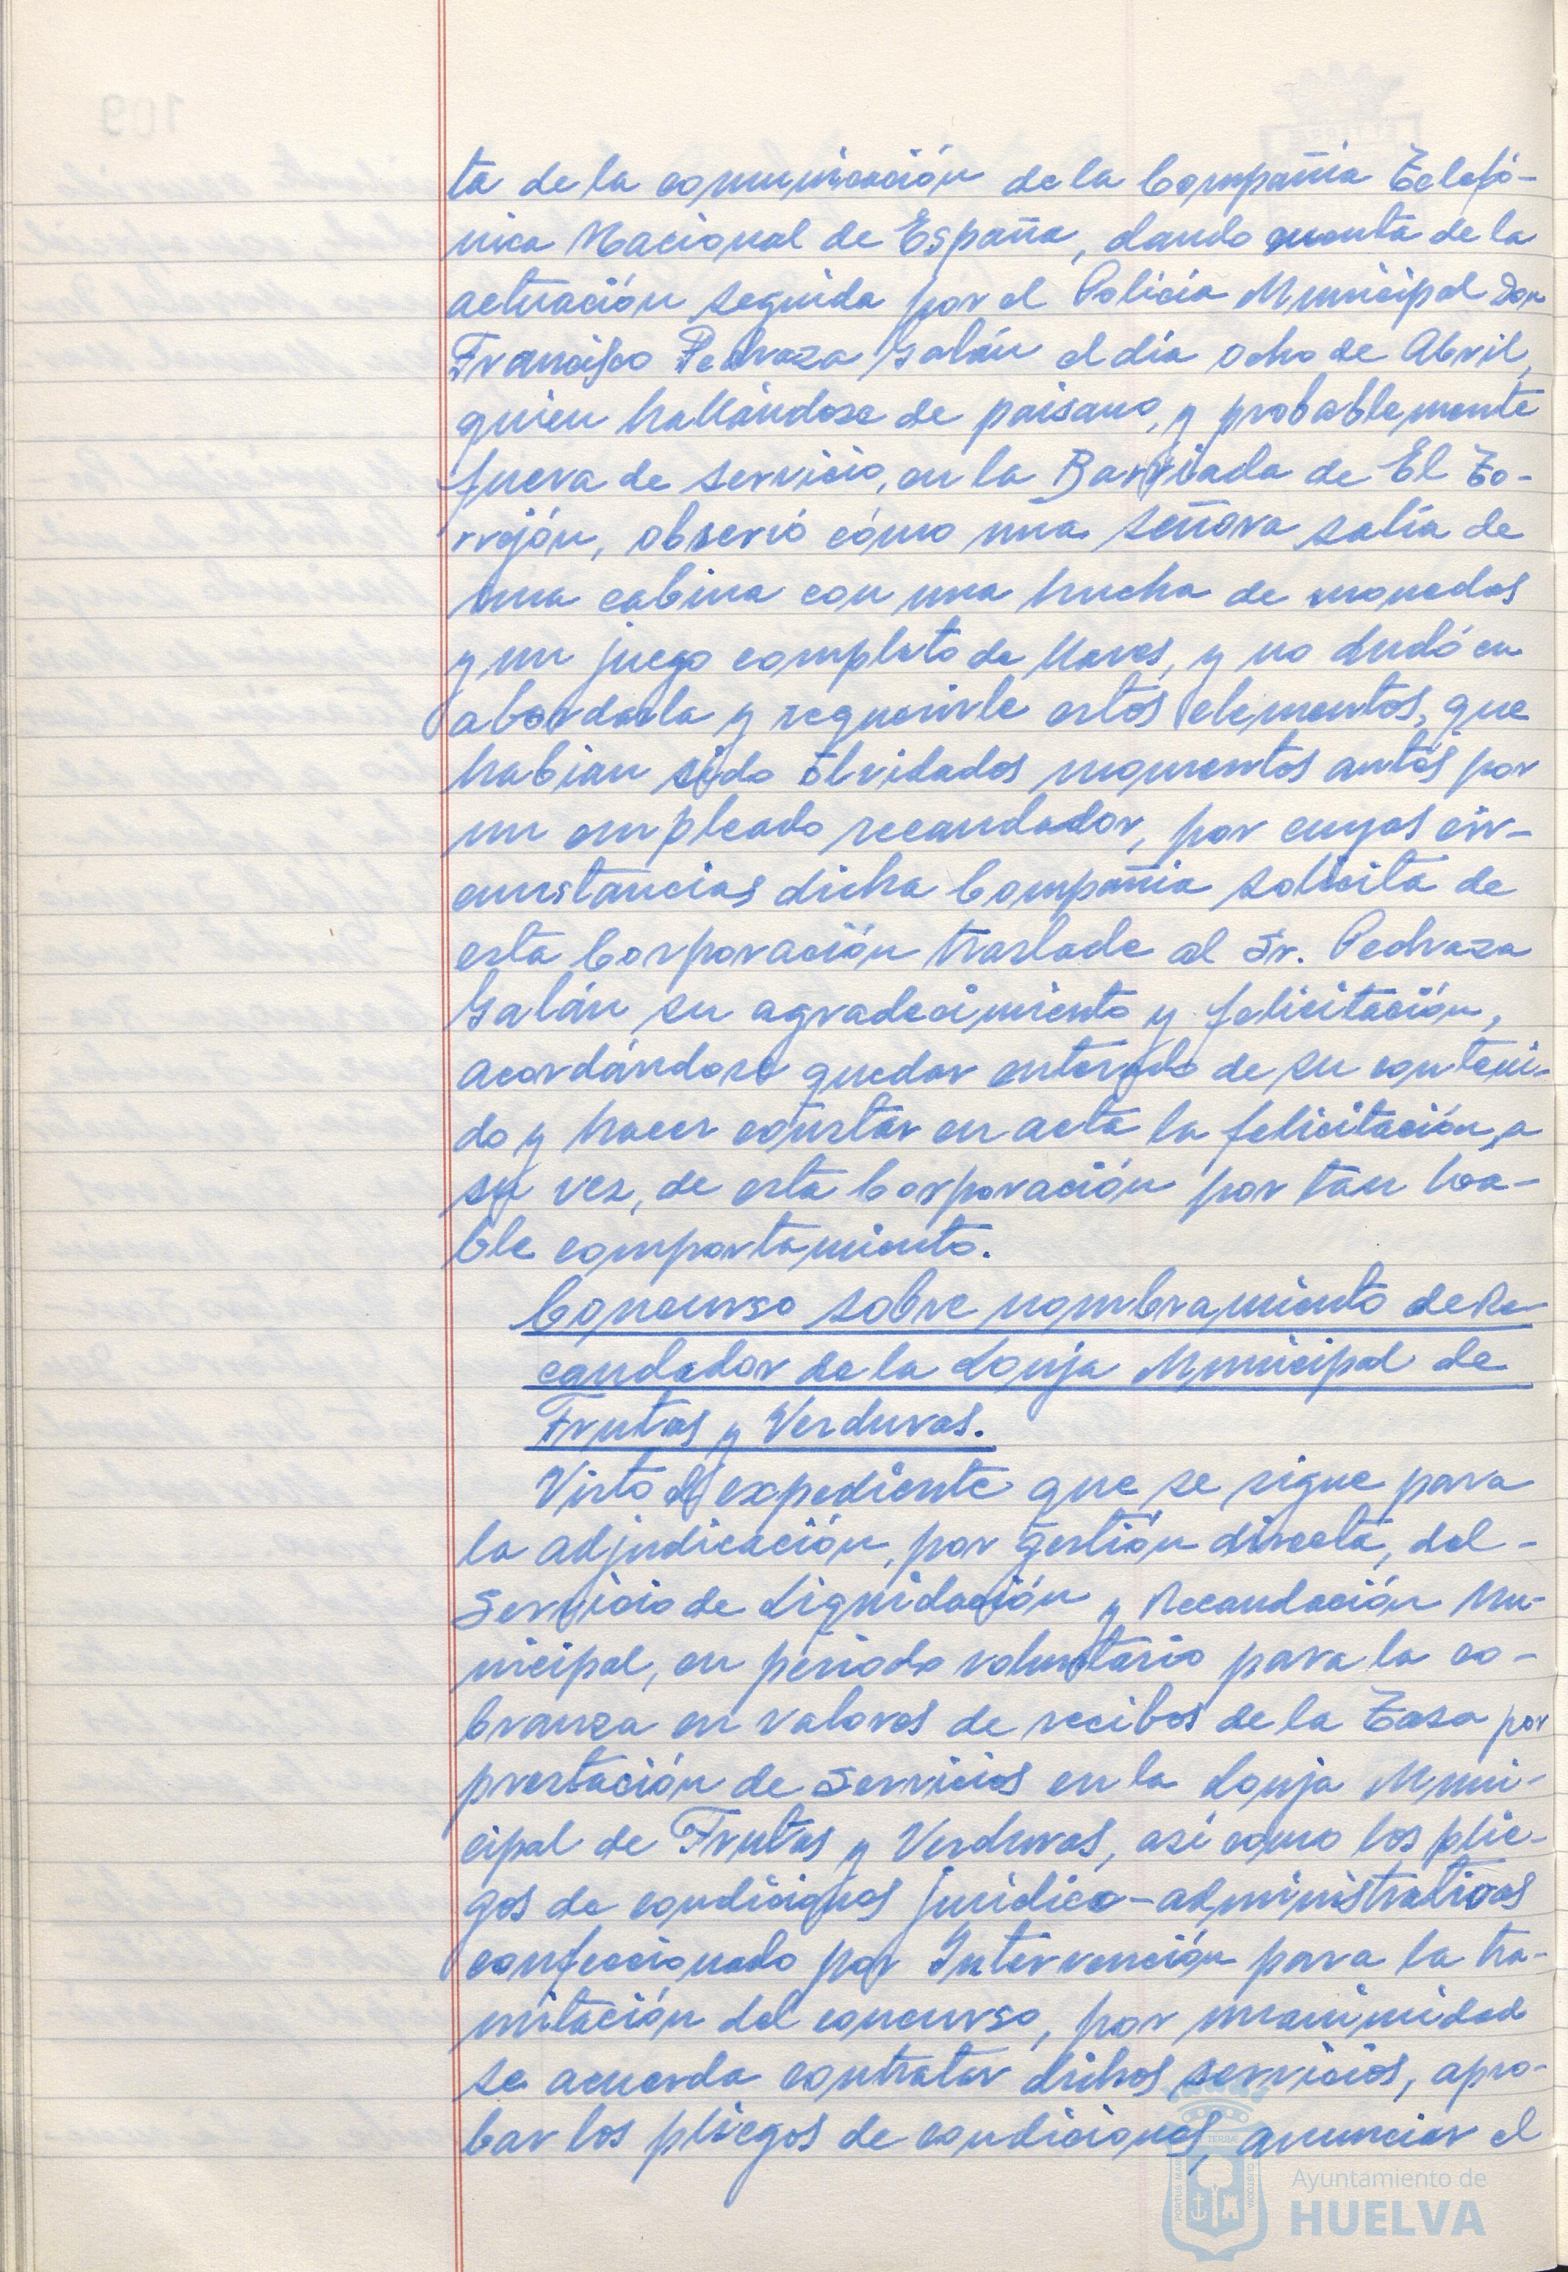 ta de la comunicación de la Compañía Telefó-
nica Nacional de España, dando cuenta de la
actuación seguida por el Policía Municipal Don
Francisco Pedraza Galán el día ocho de Abril,
quien hallándose de paisano, y probablemente
fuera de servicio, en la Barriada de El To-
rrejón, observó cómo una señora salía de
una cabina con una hucha de monedas
y un juego completo de llaves, y no dudó en
abordarla y requerirle estos elementos, que
habían sido olvidados momentos antes por
un empleado recaudador, por cuyas cir-
cunstancias dicha Compañía solicita de
esta Corporación traslade al Sr. Pedraza
Galán su agradecimiento y felicitación,
acordándose quedar enterado de su conteni-
do y hacer constar en acta la felicitación, a
su vez, de esta Corporación por tan loa-
ble comportamiento.
Concurso sobre nombramiento de Re-
caudador de la Lonja Municipal de
Frutas y Verduras.
Visto el expediente que se sigue para
la adjudicación, por gestión directa, del-
Servicio de Liquidación y Recaudación Mu-
nicipal, en período voluntario para la co-
branza en valores de recibos de la Tasa por
prestación de Servicios en la Lonja Muni-
cipal de Frutas y Verduras, así como los plie-
gos de condiciones jurídico-administrativas
confeccionado por Intervención para la tra-
mitación del concurso, por unanimidad
se acuerda contratar dichos servicios, apro-
bar los pliegos de condiciones, anunciar el
Ayuntamiento de
HUELVA